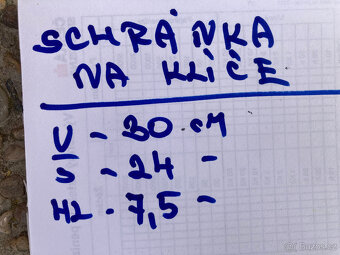 SCHRÁNKA
NA KLÍČE
V - 30 cM
Š - 24 -
HL - 7,5 -
Sbazos.cz